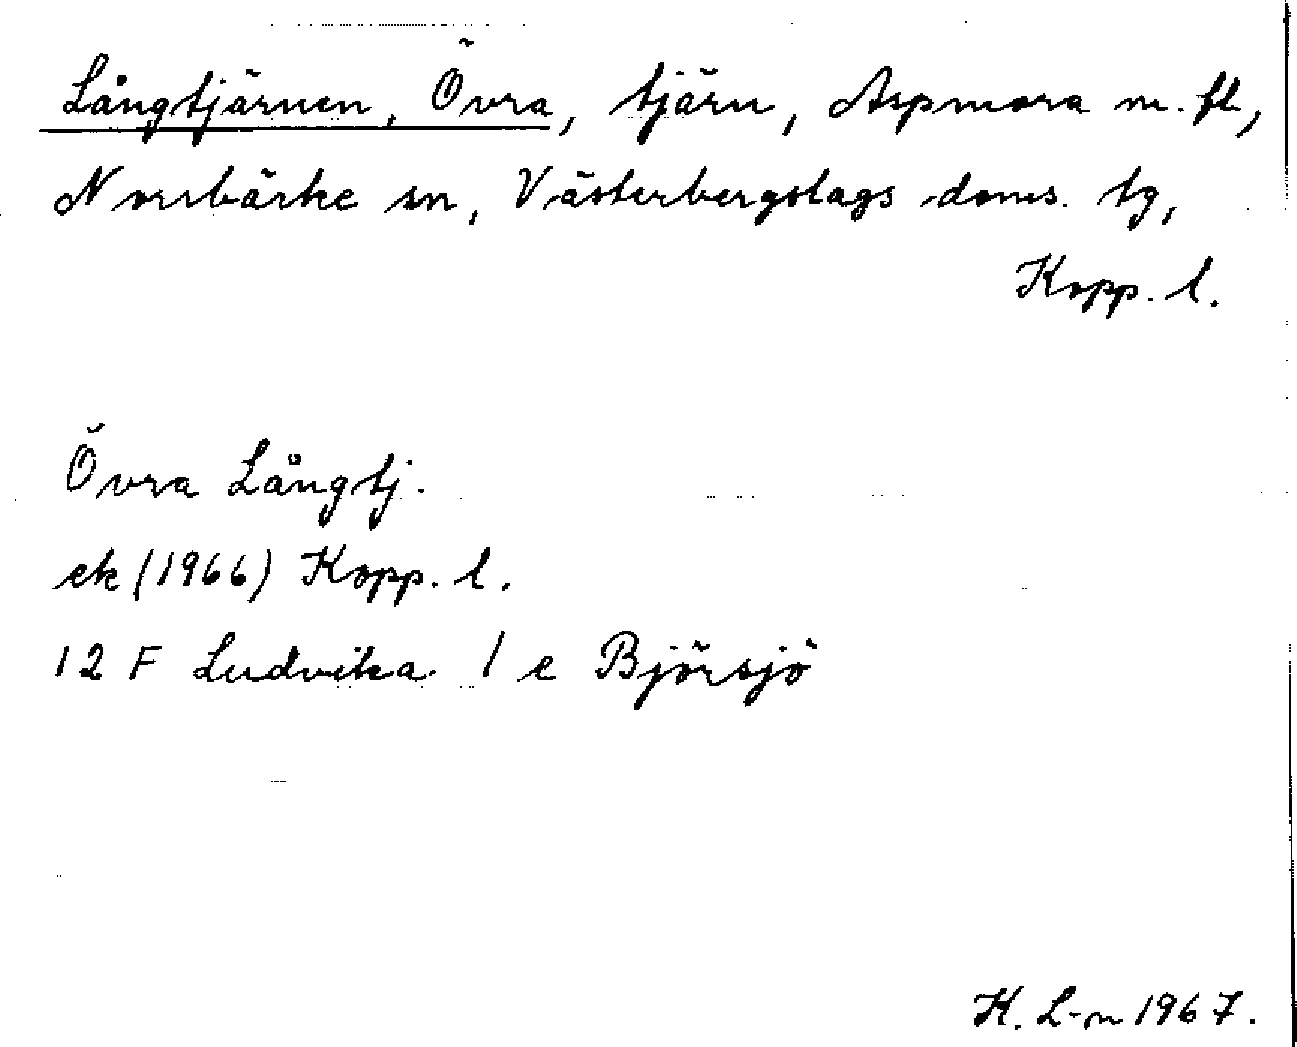 Långtjärnen, Övra, tjärn, Aspmora m. fl.,
Norrbärke sn, Västerbergslags doms. tg,
Kopp. l.
Övra Långtj.
ek (1966) Kopp. l.
12 F Ludvika 1 e Björsjö
H. L-n 1967.